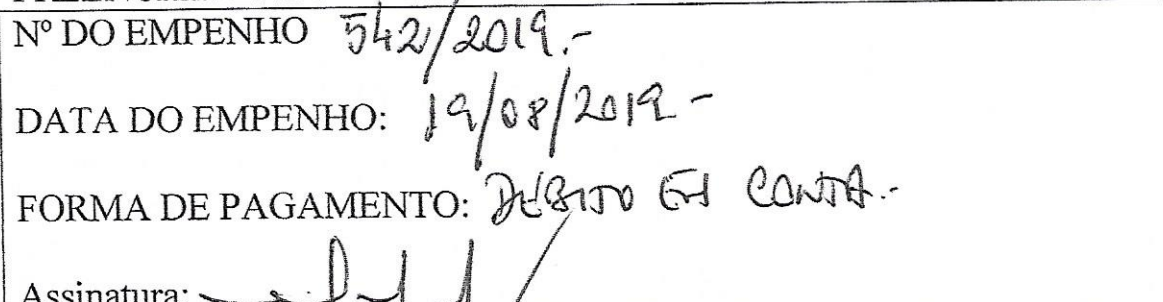 Nº DO EMPENHO 542/2019.-
DATA DO EMPENHO: 19/08/2019 -
FORMA DE PAGAMENTO: DÉBITO EM CONTA.-
Assinatura: